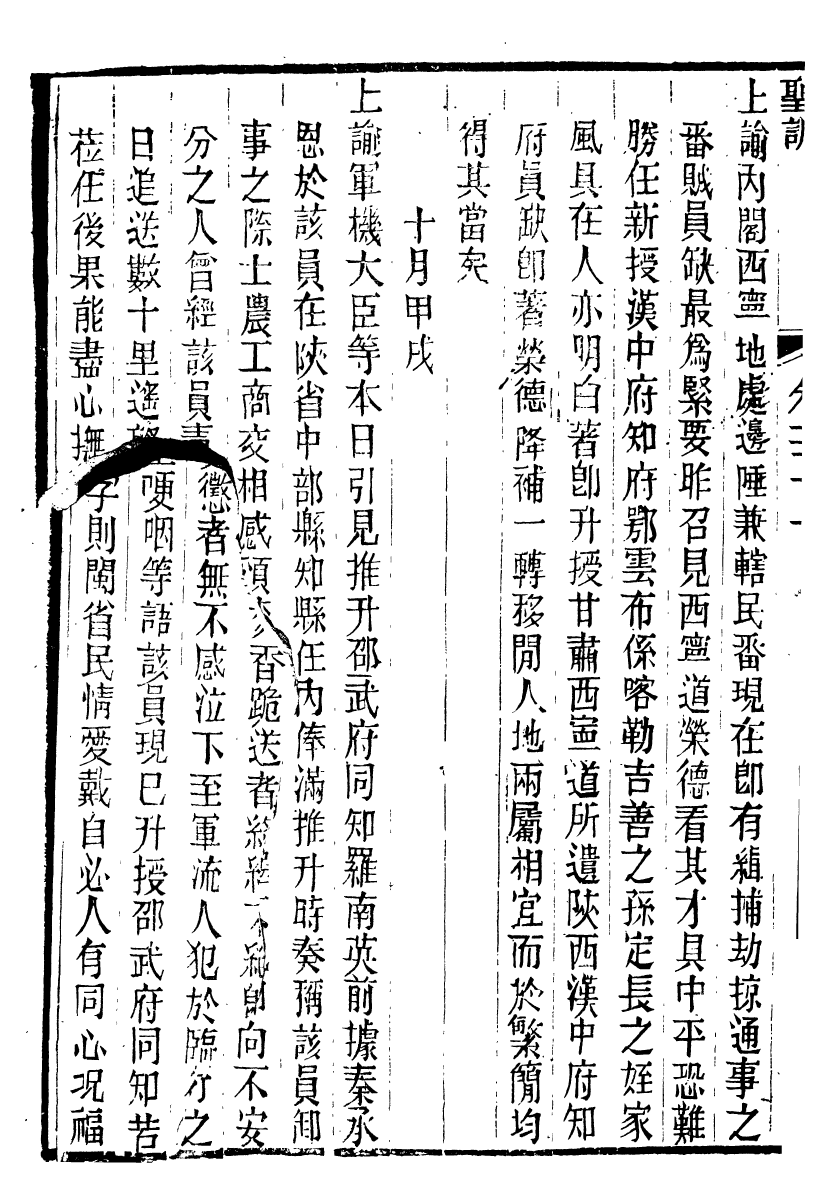 聖訓
卷二十一
上諭內閣西寧地處邊陲兼轄民番現在卽有緝捕劫掠通事之
番賊員缺最為緊要昨召見西寧道榮德看其才具中平恐難
勝任新授漢中府知府鄂雲布係喀勒吉善之孫定長之姪家
風具在人亦明白著卽升授甘肅西寧道所遺陝西漢中府知
府員缺卽著榮德降補一轉移閒人地兩屬相宜而於繁簡均
得其當矣
十月甲戌
上諭軍機大臣等本日引見推升邵武府同知羅南英前據秦承
恩於該員在陝省中部縣知縣任內俸滿推升時奏稱該員卸
事之際士農工商交相感頌焚香跪送者紛紛不絕卽向不安
分之人曾經該員責懲者無不感泣下至軍流人犯於臨行之
日追送數十里遙望哽咽等語該員現已升授邵武府同知若
莅任後果能盡心撫字則閩省民情愛戴自必人有同心況福